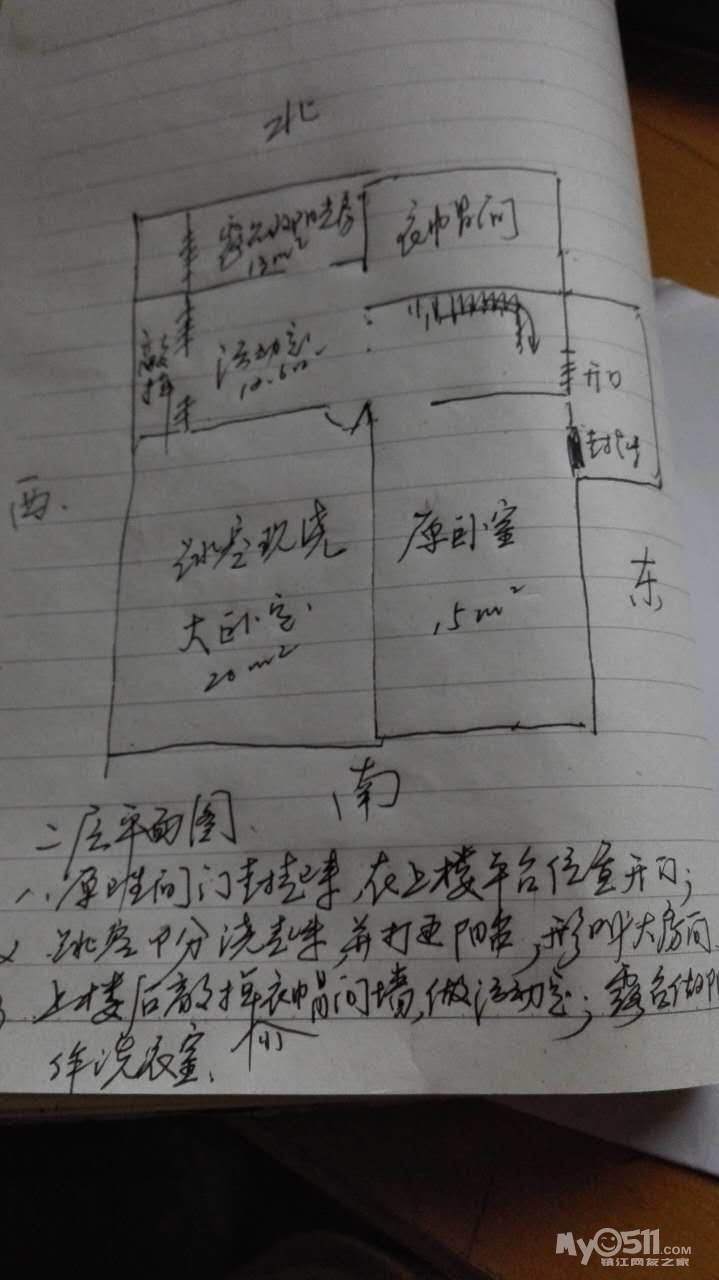 北
露台做阳光房
13m²
衣帽间
敲掉
活动室
10.6m²
开门
封掉
西.
挑空现浇
大卧室
20m²
原卧室
15m²
东
南
二层平面图
1、原卫生间门封起来,在上楼平台位置开门;
2 挑空部分浇起来,并打通阳台,形成大房间
3、上楼后敲掉衣帽间墙,做活动室;露台做阳
作洗衣室、
My0511.com
镇江网友之家